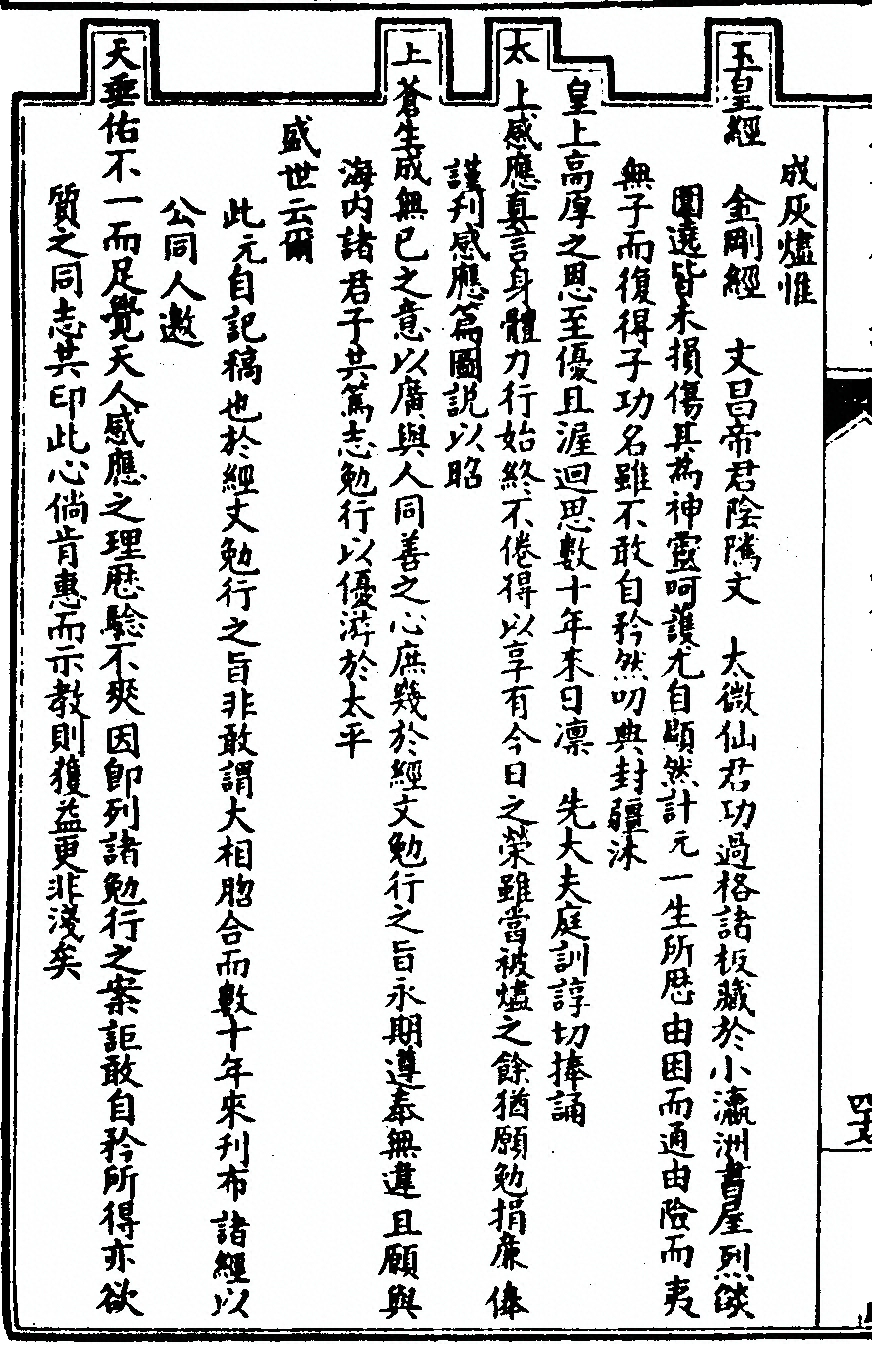 成灰燼惟
玉皇經　金剛經　文昌帝君陰隲文　太微仙君功過格諸板藏於小瀛洲書屋烈燄
圍遶皆未損傷其為神靈呵護尤自顯然計元一生所歷由困而通由險而夷
無子而復得子功名雖不敢自矜然叨典封疆沐
皇上高厚之恩至優且渥迴思數十年來日凜　先大夫庭訓諄切捧誦
太上感應真言身體力行始終不倦得以享有今日之榮雖當被燼之餘猶願勉捐廉俸
謹刋感應篇圖説以昭
上蒼生成無已之意以廣與人同善之心庶幾於經文勉行之旨永期遵奉無違且願與
海内諸君子共篤志勉行以優游於太平
盛世云爾
此元自記稿也於經文勉行之旨非敢謂大相脗合而數十年來刋布諸經以
公同人邀
天垂佑不一而足覺天人感應之理歷驗不爽因卽列諸勉行之案詎敢自矜所得亦欲
質之同志共印此心倘肯惠而示教則獲益更非淺矣